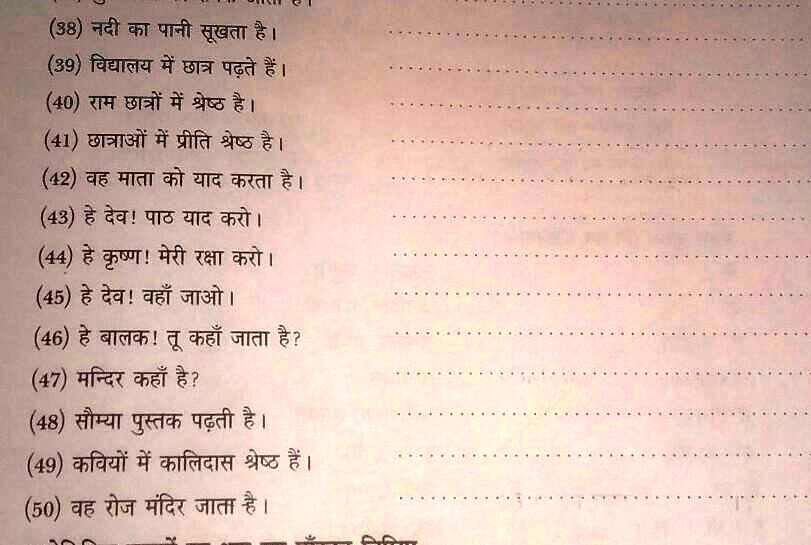 (38) नदी का पानी सूखता है।
(39) विद्यालय में छात्र पढ़ते हैं।
(40) राम छात्रों में श्रेष्ठ है।
(41) छात्राओं में प्रीति श्रेष्ठ है।
(42) वह माता को याद करता है।
(43) हे देव! पाठ याद करो।
(44) हे कृष्ण! मेरी रक्षा करो।
(45) हे देव! वहाँ जाओ।
(46) हे बालक! तू कहाँ जाता है?
(47) मन्दिर कहाँ है?
(48) सौम्या पुस्तक पढ़ती है।
(49) कवियों में कालिदास श्रेष्ठ हैं।
(50) वह रोज मंदिर जाता है।